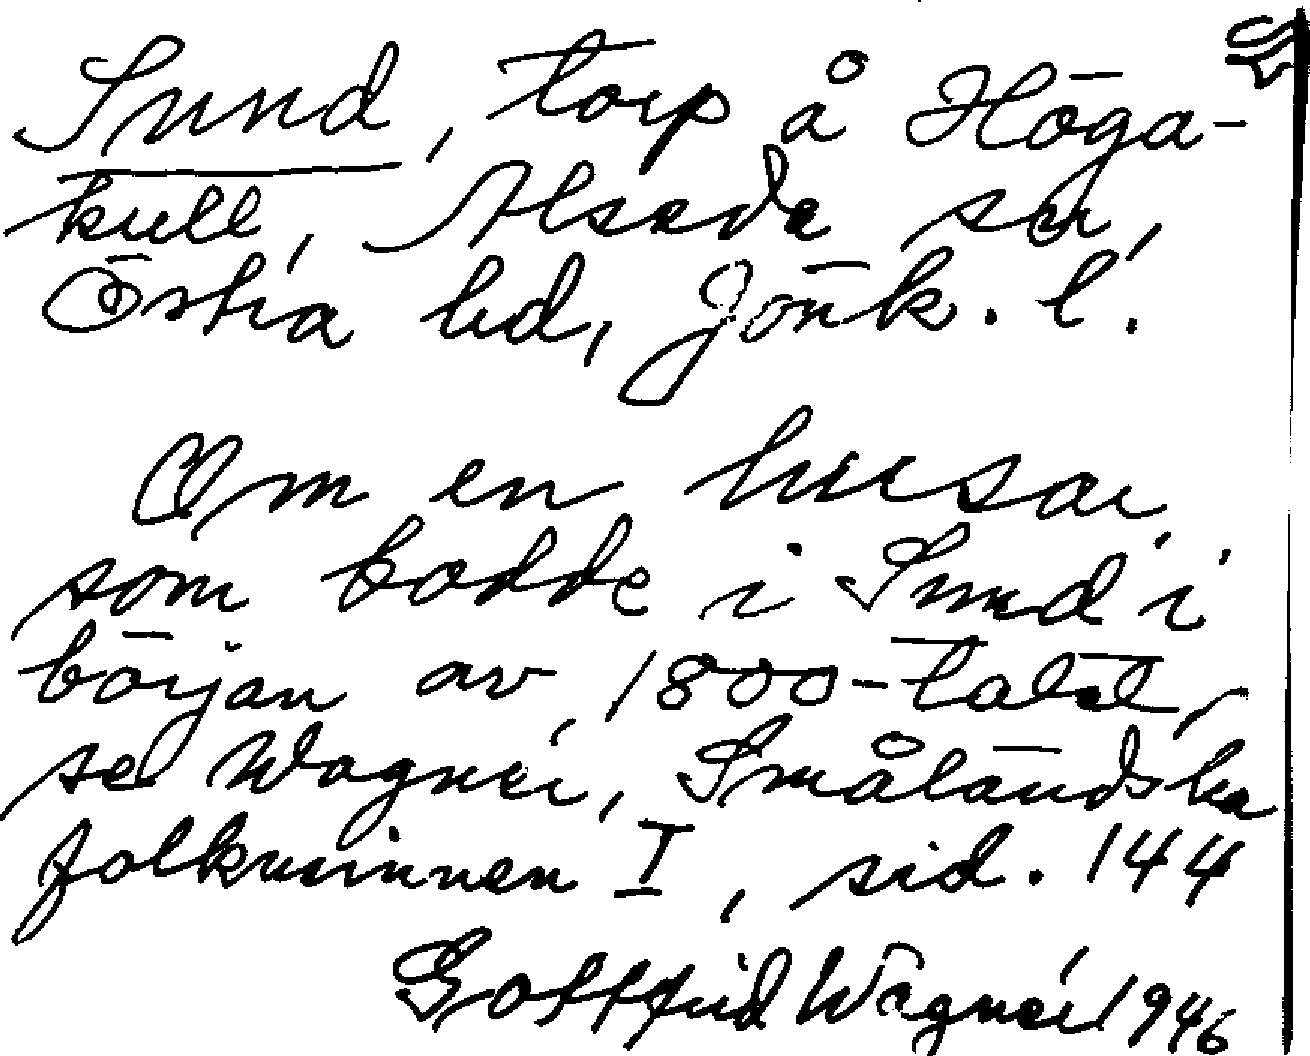 Sund, torp å Höga-
kull, Alseda sn,
Östra hd, Jönk. l.
Om en husar,
som bodde i Sund i
början av 1800-talet,
se Wagnér, Småländska
folkminnen I, sid. 144
Gottfrid Wagnér 1946